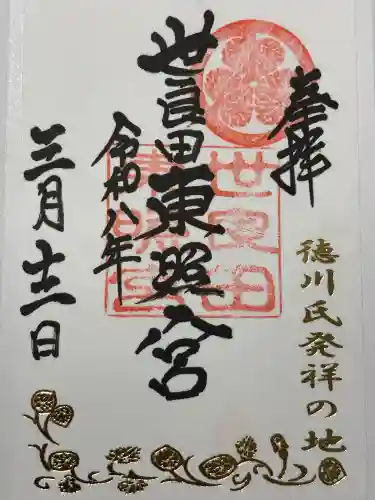 奉拝
徳川氏発祥の地
世良田東照宮
令和八年
三月十三日
世良田
東照宮